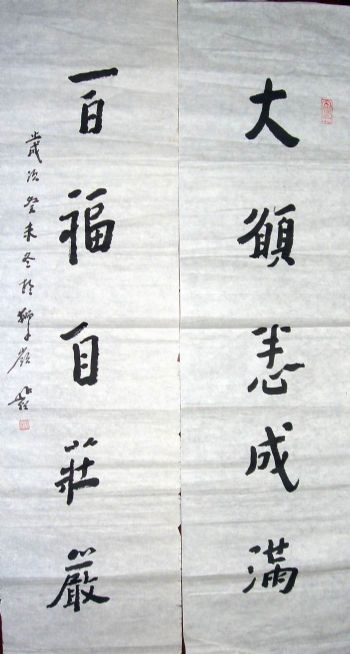 大願悉成滿
百福自莊嚴
歲次癸未冬於獅子嶺